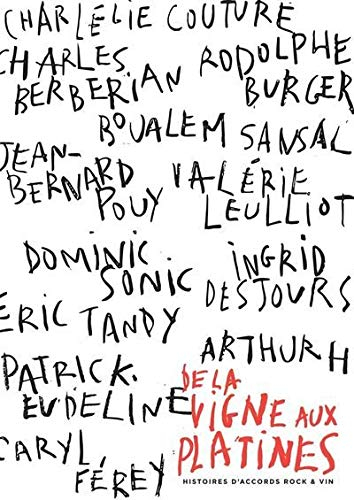 CHARLÉLIE COUTURE
CHARLES BERBERIAN
RODOLPHE BURGER
BOUALEM SANSAL
JEAN-
BERNARD
POUY
VALÉRIE
LEULLIOT
DOMINIC
SONIC
INGRID
DESJOURS
ERIC TANDY
ARTHUR H
PATRICK
EUDELINE
CARYL
FÉREY
DE LA
VIGNE AUX
PLATINES
HISTOIRES D'ACCORDS ROCK & VIN